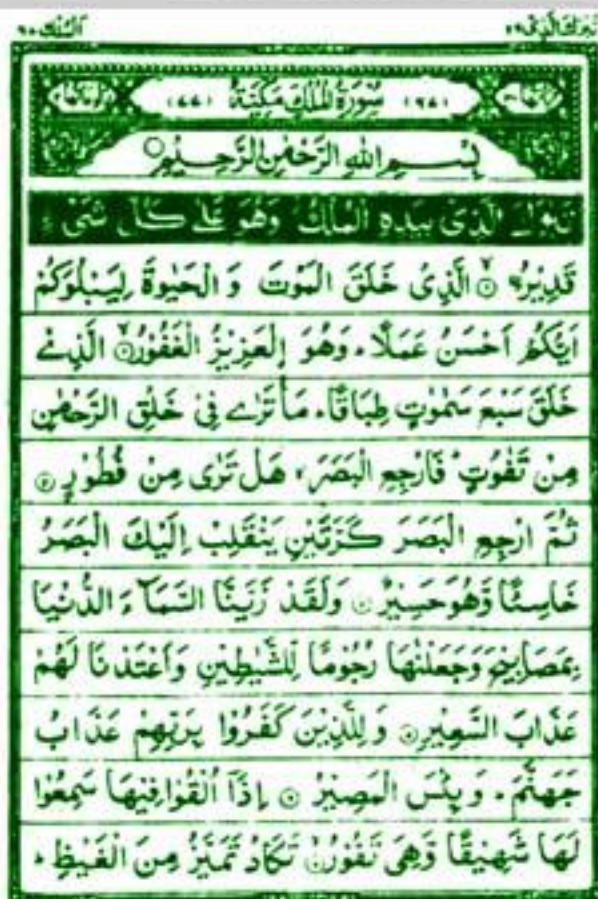 تبرك الذی ٢٩
الملك ٦٧
(٦٧) سُوْرَةُ الْمُلْكِ مَكِّيَّةٌ (٧٧)
بِسْمِ اللّٰهِ الرَّحْمٰنِ الرَّحِيْمِ
تَبٰرَكَ الَّذِیْ بِیَدِهِ الْمُلْكُ وَهُوَ عَلٰی كُلِّ شَیْءٍ
قَدِیْرُ ۙ الَّذِیْ خَلَقَ الْمَوْتَ وَ الْحَیٰوةَ لِیَبْلُوَكُمْ
اَیُّكُمْ اَحْسَنُ عَمَلًا ؕ وَهُوَ الْعَزِیْزُ الْغَفُوْرُ ۙ الَّذِیْ
خَلَقَ سَبْعَ سَمٰوٰتٍ طِبَاقًا ؕ مَا تَرٰی فِیْ خَلْقِ الرَّحْمٰنِ
مِنْ تَفٰوُتٍ ؕ فَارْجِعِ الْبَصَرَ ۙ هَلْ تَرٰی مِنْ فُطُوْرٍ
ثُمَّ ارْجِعِ الْبَصَرَ كَرَّتَیْنِ یَنْقَلِبْ اِلَیْكَ الْبَصَرُ
خَاسِئًا وَّهُوَ حَسِیْرٌ وَلَقَدْ زَیَّنَّا السَّمَآءَ الدُّنْیَا
بِمَصَابِیْحَ وَجَعَلْنٰهَا رُجُوْمًا لِّلشَّیٰطِیْنِ وَاَعْتَدْنَا لَهُمْ
عَذَابَ السَّعِیْرِ وَ لِلَّذِیْنَ كَفَرُوْا بِرَبِّهِمْ عَذَابُ
جَهَنَّمَ ؕ وَ بِئْسَ الْمَصِیْرُ اِذَاۤ اُلْقُوْا فِیْهَا سَمِعُوْا
لَهَا شَهِیْقًا وَّهِیَ تَفُوْرُ ۙ تَكَادُ تَمَیَّزُ مِنَ الْغَیْظِ ؕ